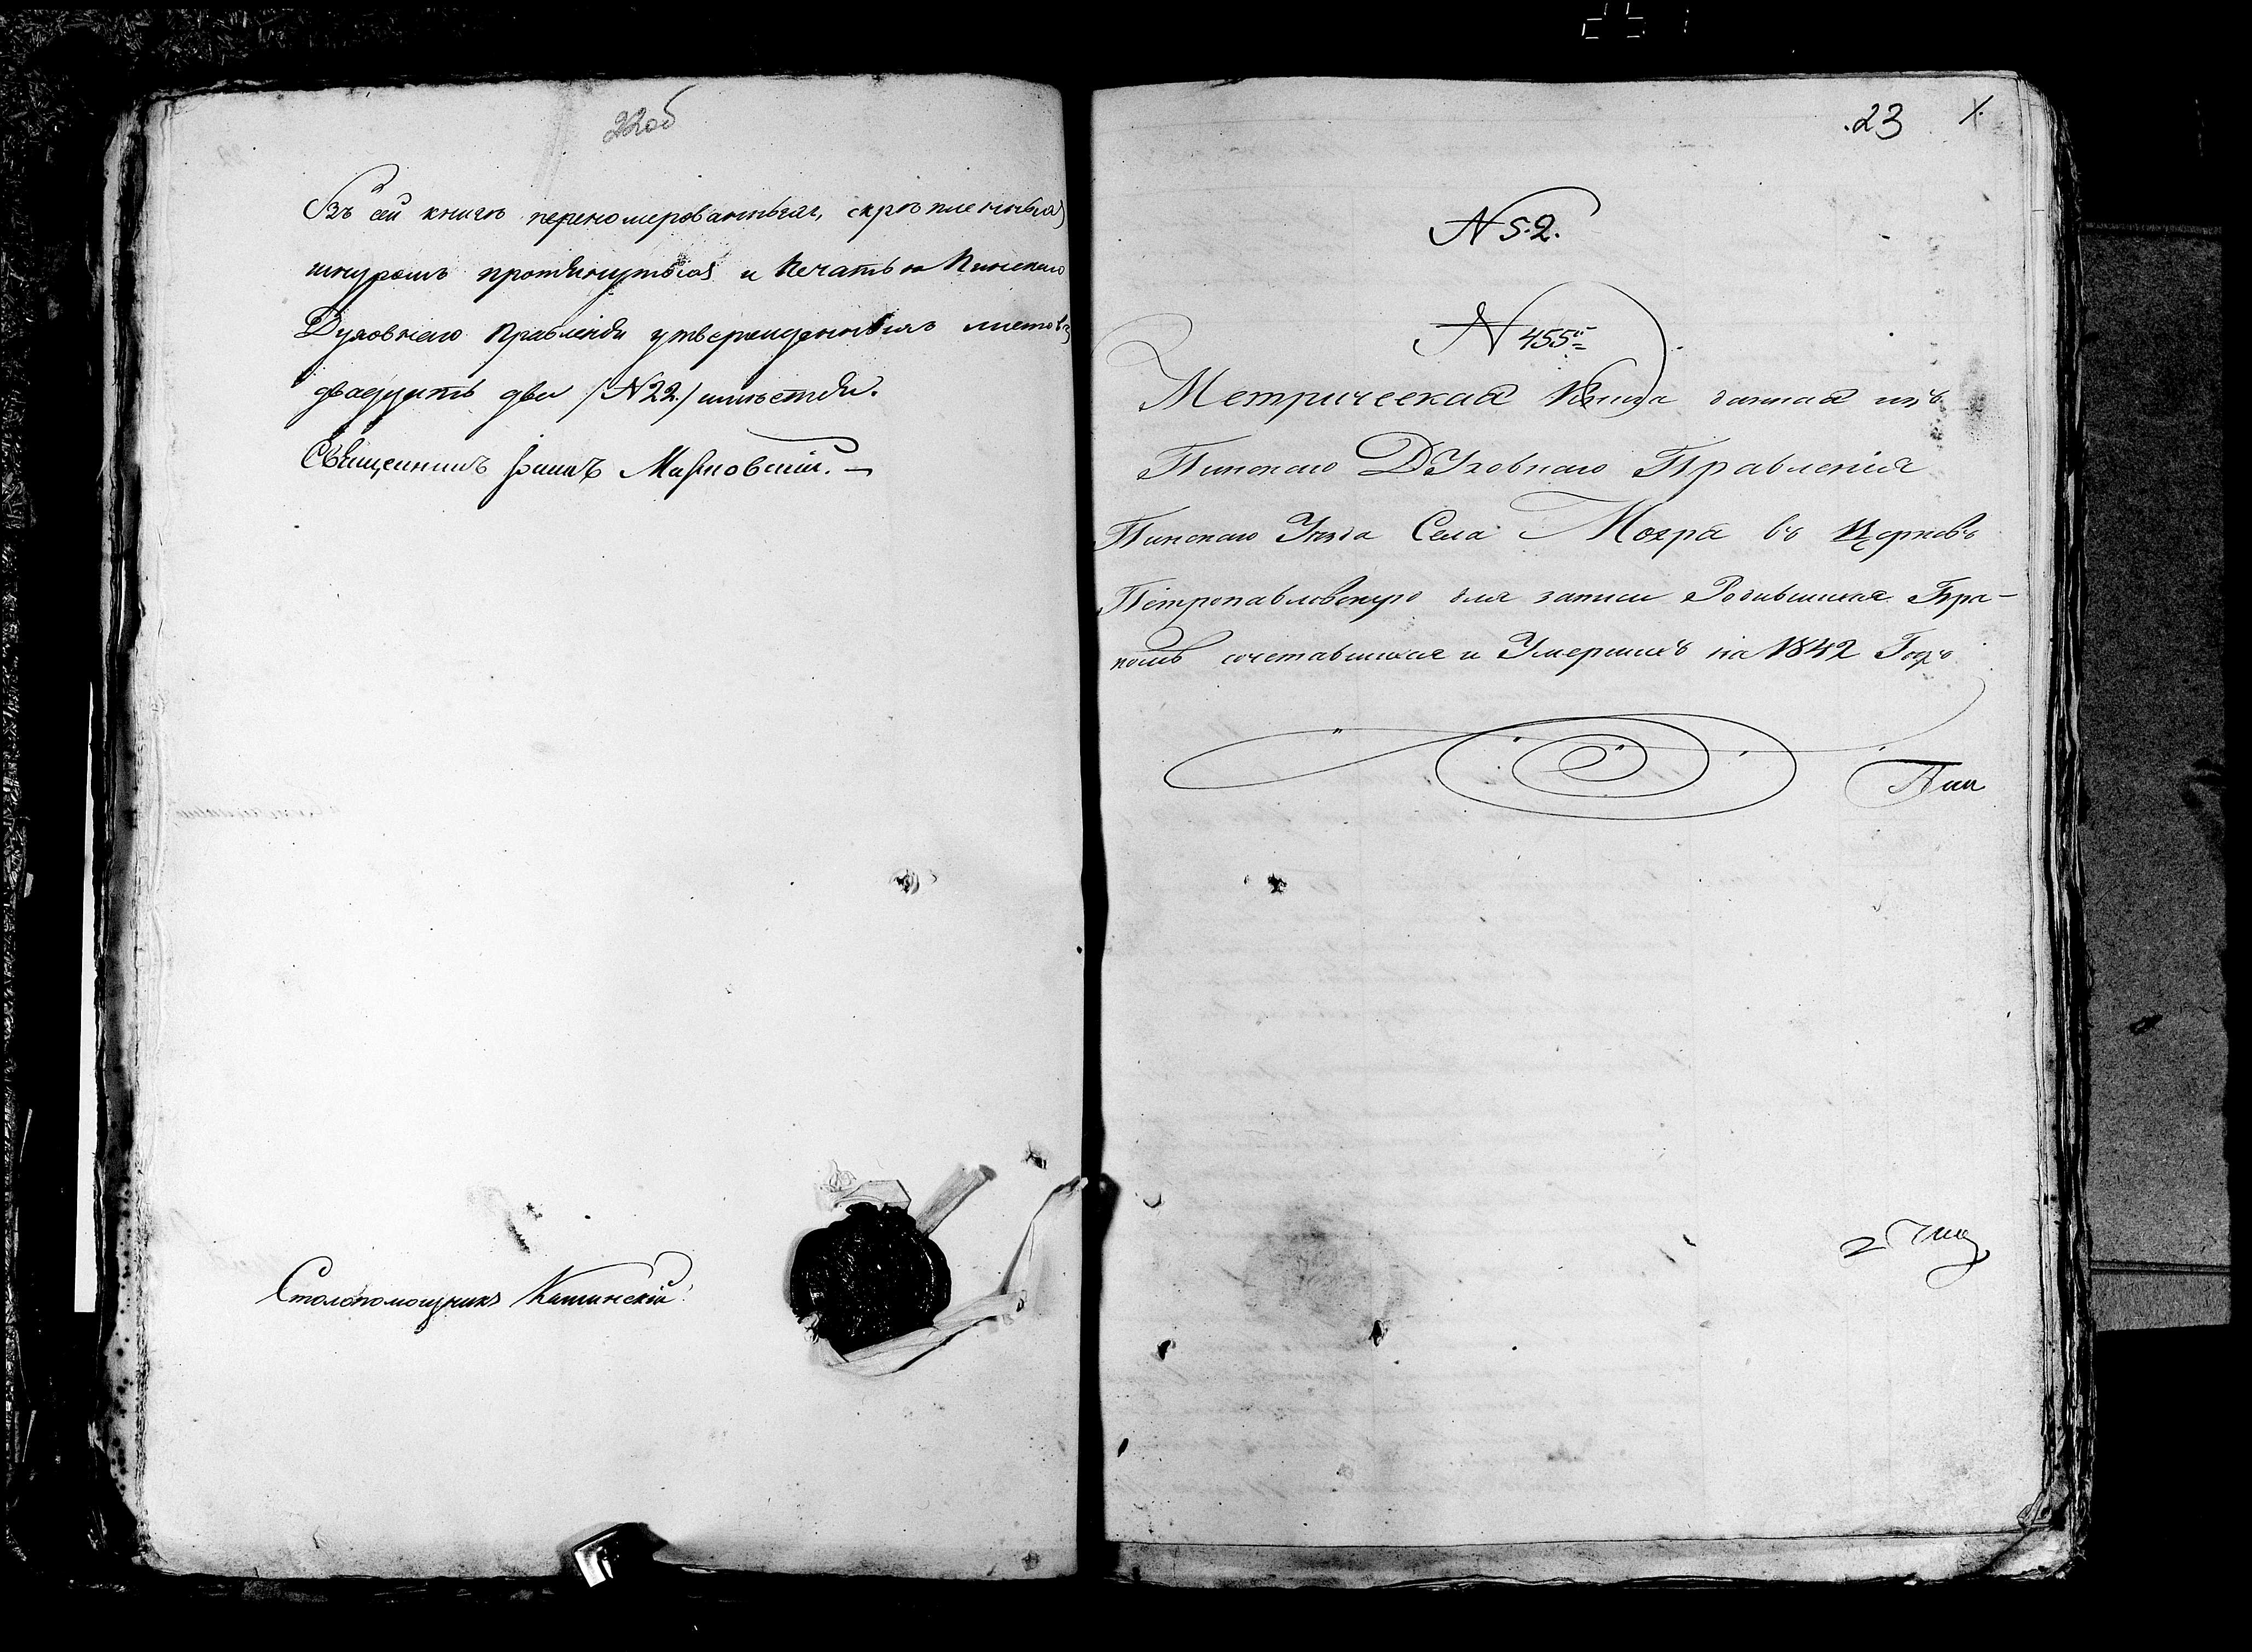 22об
Въ сей книгѣ переномерованныхъ, скрѣпленныхъ
шнуромъ протянутыхъ и Печатью Пинскаго
Духовнаго Правленія утвержденныхъ листовъ
двадцать два /№ 22./ имѣется.
Священникъ Іоаннъ
Столопомощникъ
23
№ 52.
№ 455
Метрическая Книга данная изъ
Пинскаго Духовнаго Правленія
Пинскаго Уезда Села Мохра въ Церковь
Петропавловскую для записи Родившихся Бра-
комъ сочетавшихся и Умершихъ на 1842 Годъ